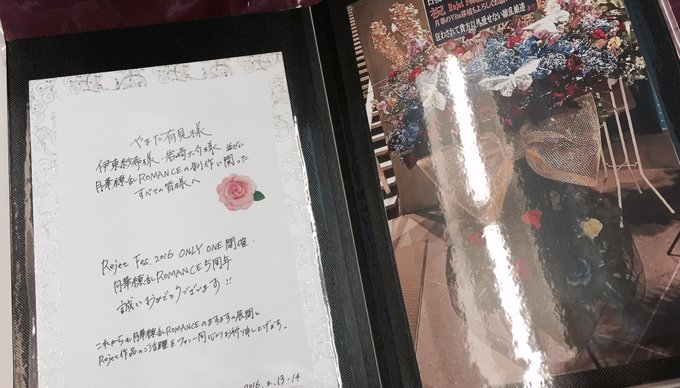 やまだ有見様
伊東紗布様・岩崎大介様 並びに
月華繚乱ROMANCEの制作に関った
すべての皆様へ
Rejet Fes. 2016 ONLY ONE開催・
月華繚乱ROMANCE5周年
誠におめでとうございます!!
これからも月華繚乱ROMANCEのますますの展開と
Rejet作品のご活躍をファン一同心よりお祈り申し上げます。
2016. 2. 13-14